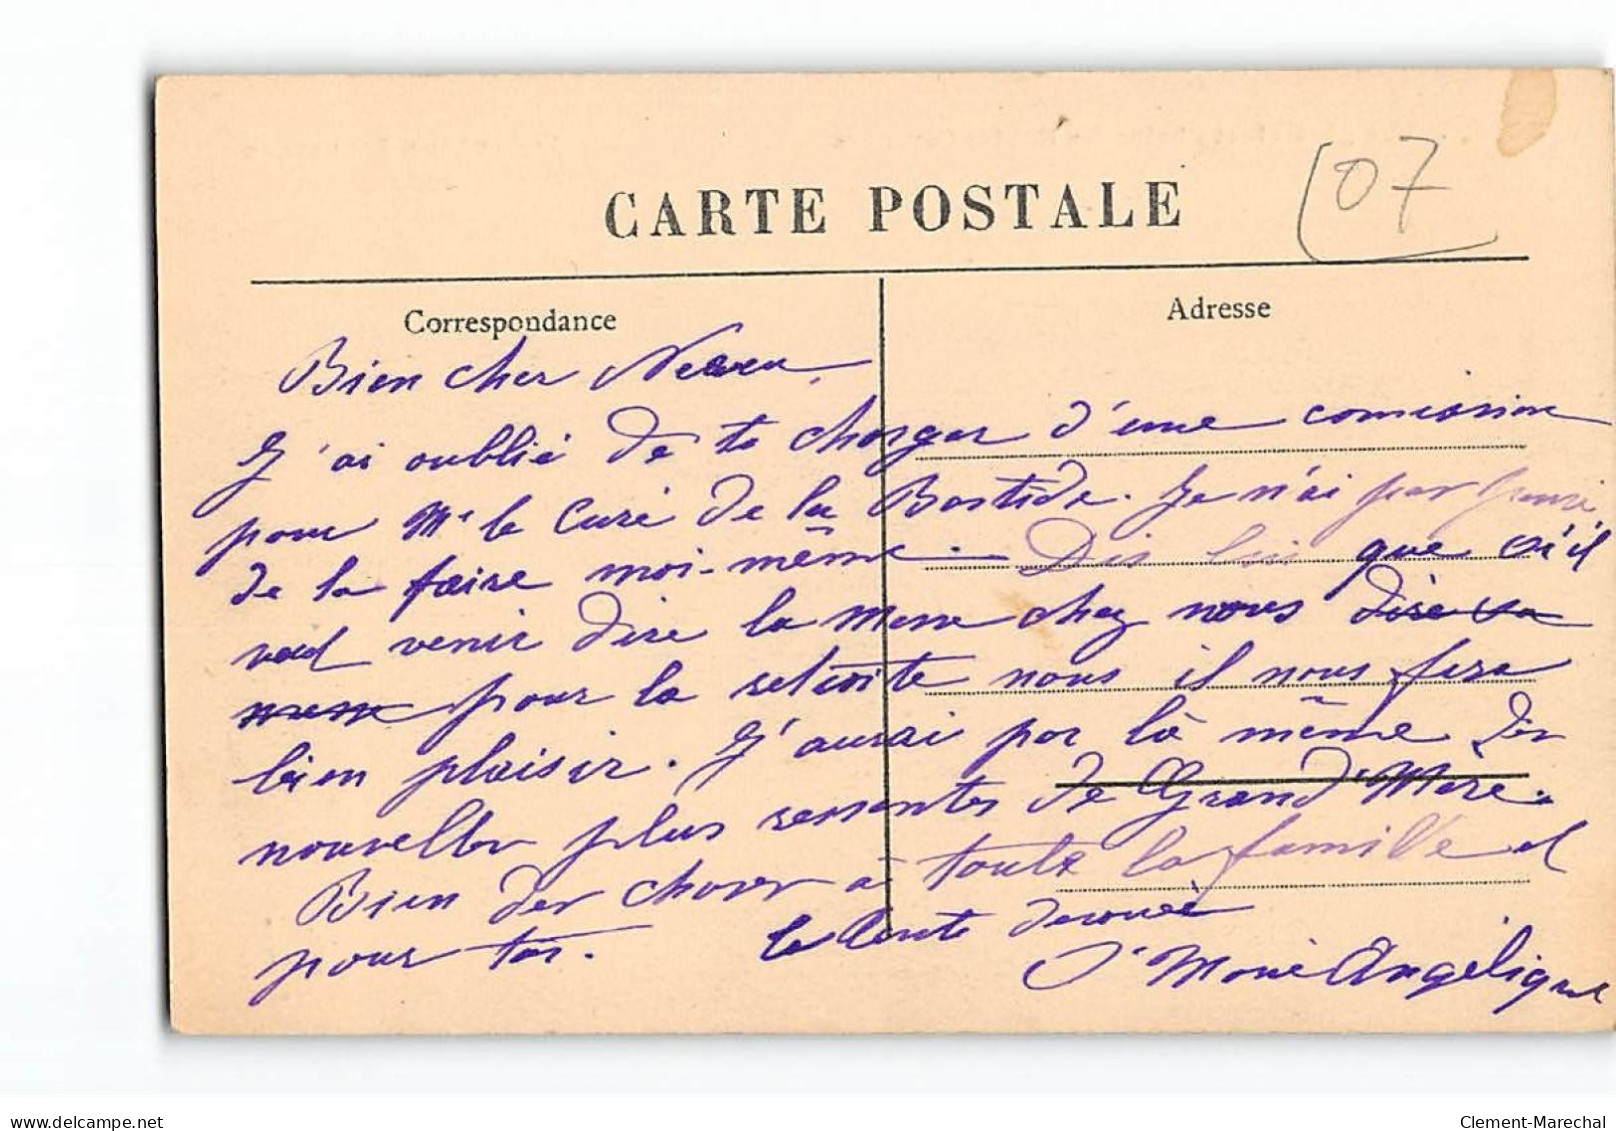 CARTE POSTALE
(07
Correspondance
Adresse
Bien cher Neveu
J'ai oublié de te charger d'une comission
pour Mr le Curé de la Bastide. Je n'ai pas
de la faire moi-même. Dis lui que s'il
venir dire la messe chez nous dire sa
messe pour la retraite nous il nous fera
bien plaisir. J'aurai par là même des
nouvelles plus recentes de Grand'Mère.
Bien des choses à toute la famille et
pour toi. ta tante devouée
Sr Marie Angélique
delcampe.net
Clement-Marechal